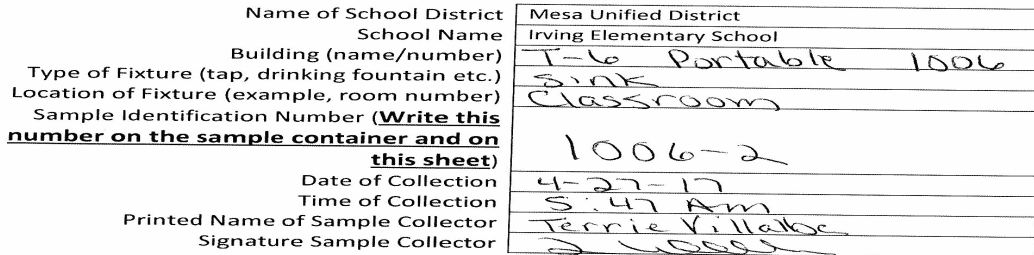 Name of School District Mesa Unified District
School Name Irving Elementary School
Building (name/number) T-6 Portable 1006
Type of Fixture (tap, drinking fountain etc.) Sink
Location of Fixture (example, room number) Classroom
Sample Identification Number (Write this
number on the sample container and on
this sheet) 1006-2
Date of Collection 4-27-17
Time of Collection 5:47 Am
Printed Name of Sample Collector Terrie Villalba
Signature Sample Collector